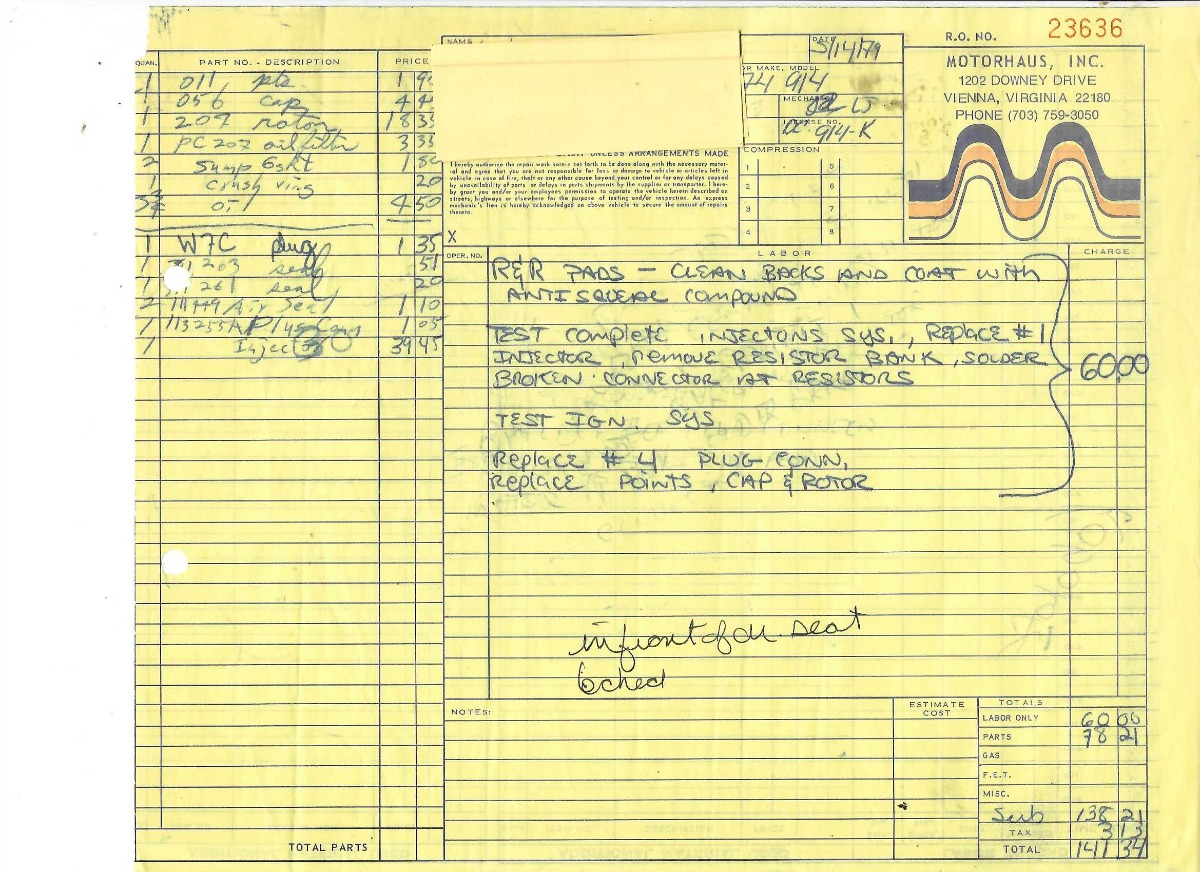 R.O. NO. 23636
MOTORHAUS, INC.
1202 DOWNEY DRIVE
VIENNA, VIRGINIA 22180
PHONE (703) 759-3050
NAME
DATE
5/14/79
MAKE, MODEL
74 914
914-K
QUAN. PART NO. - DESCRIPTION PRICE
1 011 pts 1 9
1 056 cap 4 4
1 207 rotor 18 35
1 PC 202 oil filter 3 35
2 Sump Gskt 1
1 Crush ring 20
4 50
1 W7C plug 1 35
1 263 seal 51
1 261 seal 20
2 111449 Air Seal 1 10
1 113255A Plug Conn 1 05
1 Injector 39 45
TOTAL PARTS
UNLESS ARRANGEMENTS MADE
I hereby authorize the repair work herein set forth to be done along with the necessary mater-
ial and agree that you are not responsible for loss or damage to vehicle or articles left in
vehicle in case of fire, theft or any other cause beyond your control or for any delays caused
by unavailability of parts or delays in parts shipments by the supplier or transporter. I here-
by grant you and/or your employees permission to operate the vehicle herein described on
streets, highways or elsewhere for the purpose of testing and/or inspection. An express
mechanic's lien is hereby acknowledged on above vehicle to secure the amount of repairs
thereto.
X
COMPRESSION
1 5
2 6
3 7
4 8
OPER. NO. LABOR CHARGE
R&R PADS — CLEAN BACKS AND COAT WITH
ANTISQUEAL COMPOUND
TEST COMPLETE INJECTONS SYS., REPLACE #1
INJECTOR, REMOVE RESISTOR BANK, SOLDER
BROKEN CONNECTOR AT RESISTORS
60.00
TEST IGN. SYS
REPLACE #4 PLUG CONN,
REPLACE POINTS, CAP & ROTOR
in front of dr. seat
NOTES:
ESTIMATE
COST
TOTALS
LABOR ONLY 60 00
PARTS 78 21
GAS
F.E.T.
MISC.
Sub 138 21
TAX 3 13
TOTAL 141 34